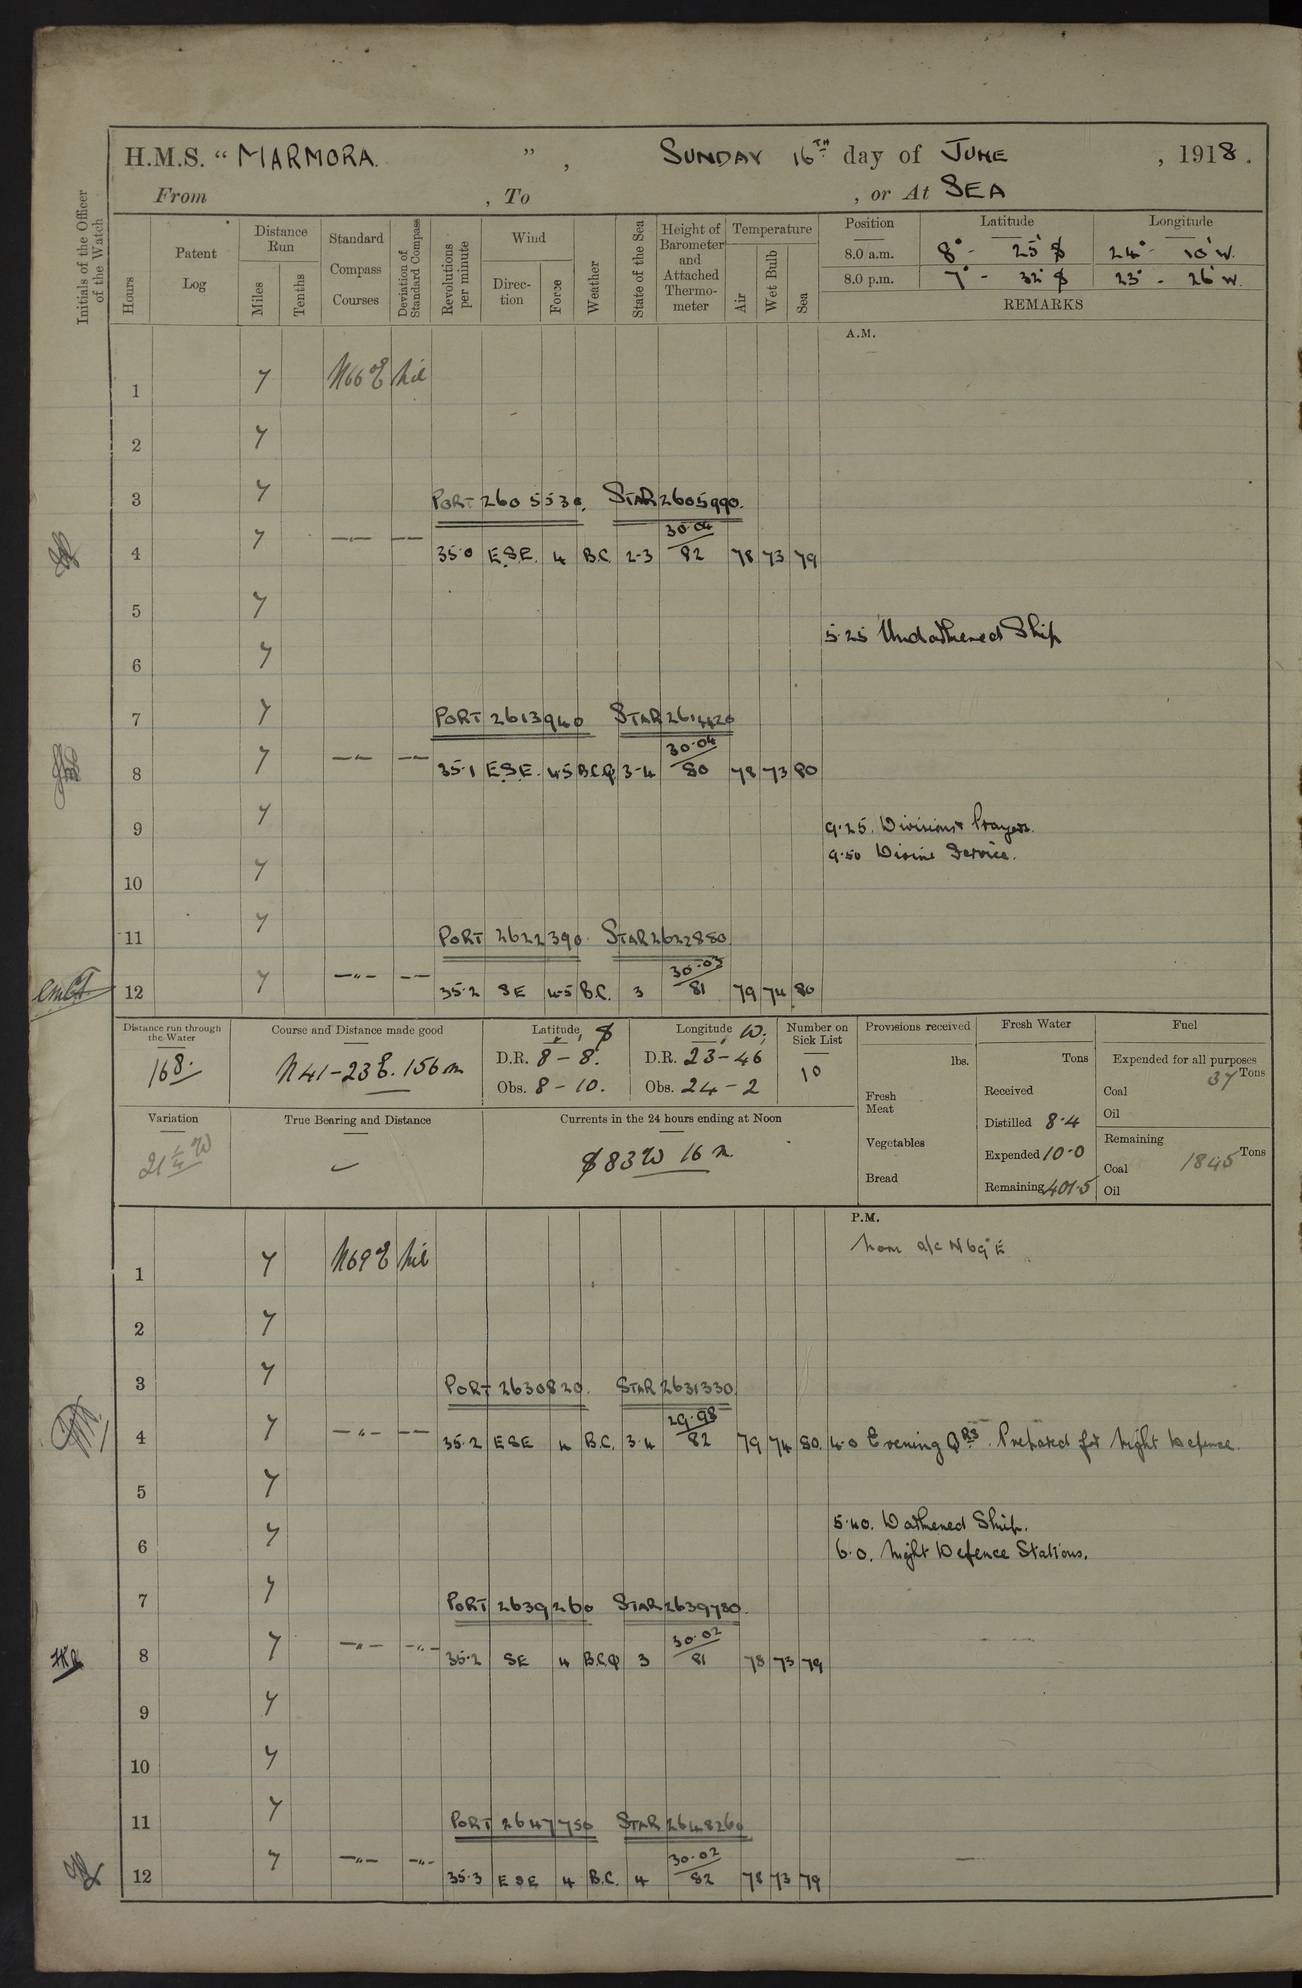 H.M.S. "MARMORA.", SUNDAY 16TH day of JUNE, 1918.
From , To , or At SEA
Initials of the Officer of the Watch
Hours
Patent Log
Distance Run
Miles
Tenths
Standard Compass Courses
Deviation of Standard Compass
Revolutions per minute
Wind
Direction
Force
Weather
State of the Sea
Height of Barometer and Attached Thermometer
Temperature
Air
Wet Bulb
Sea
Position Latitude Longitude
8.0 a.m. 8° - 25' S 24° - 10' W.
8.0 p.m. 7° - 32' S 23° - 26' W.
REMARKS
A.M.
1 7 N66°E Nil
2 7
3 7 PORT 2605530. STAR 2605990.
4 7 —"— —— 35.0 E.S.E. 4 B.C. 2-3 30.04/82 78 73 79
5 7
5.25 Undarkened Ship
6 7
7 7 PORT 2613940 STAR 2614420
8 7 —"— —— 35.1 E.S.E. 4.5 B.C.Q 3-4 30.04/80 78 73 80
9 7 9.25. Divisions & Prayers.
9.50 Divine Service.
10 7
11 7 PORT 2622390 STAR 2622880
12 7 —"— —— 35.2 SE 4.5 B.C. 3 30.03/81 79 74 80
Distance run through the Water
168.
Course and Distance made good
N 41-23 E. 156 m
Latitude, S
D.R. 8 - 8.
Obs. 8 - 10.
Longitude W.
D.R. 23 - 46
Obs. 24 - 2
Number on Sick List
10
Variation
21 1/4 W
True Bearing and Distance
Currents in the 24 hours ending at Noon
S 83 W 16 m.
Provisions received
lbs.
Fresh Meat
Vegetables
Bread
Fresh Water
Tons
Received
Distilled 8.4
Expended 10.0
Remaining 401.5
Fuel
Expended for all purposes
37 Tons
Coal
Oil
Remaining
Coal 1845 Tons
Oil
P.M.
1 7 N69°E Nil Noon a/c N 69° E
2 7
3 7 PORT 2630820. STAR 2631330
4 7 —"— —— 35.2 ESE 4 B.C. 3.4 29.98/82 79 74 80. 4.0 Evening QRS. Prepared for Night Defence.
5 7
5.40. Darkened Ship.
6 7 6.0. Night Defence Stations.
7 7 PORT 2639260 STAR 2639780.
8 7 —"— —"— 35.2 SE 4 B.C.Q 3 30.02/81 78 73 79
9 7
10 7
11 7 PORT 2647750 STAR 2648260
12 7 —"— —"— 35.3 ESE 4 B.C. 4 30.02/82 78 73 79